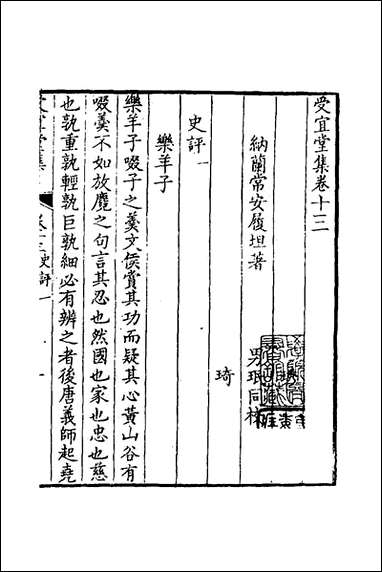 受宜堂集卷十三
納蘭常安履坦著
男珉同校
琦
史評一
樂羊子
樂羊子啜子之羹文侯賞其功而疑其心黃山谷有
啜羹不如放麑之句言其忍也然國也家也忠也慈
也孰重孰輕孰巨孰細必有辨之者後唐義師起堯
史評一